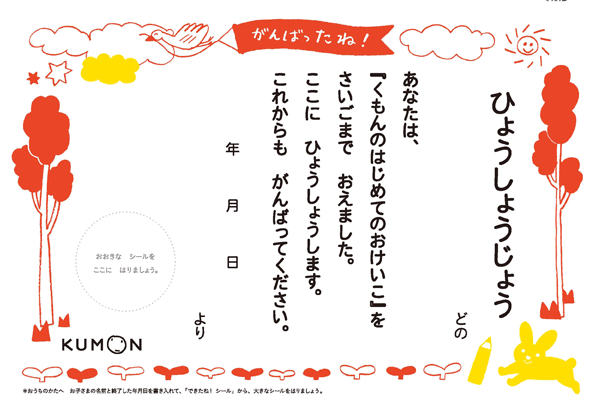 がんばったね!
ひょうしょうじょう
どの
あなたは、
『くもんのはじめてのおけいこ』を
さいごまで　おえました。
ここに　ひょうしょうします。
これからも　がんばってください。
年　月　日
より
おおきな　シールを
ここに　はりましょう。
KUMON
※おうちのかたへ　お子さまの名前と終了した年月日を書き入れて、「できたね! シール」から、大きなシールをはりましょう。